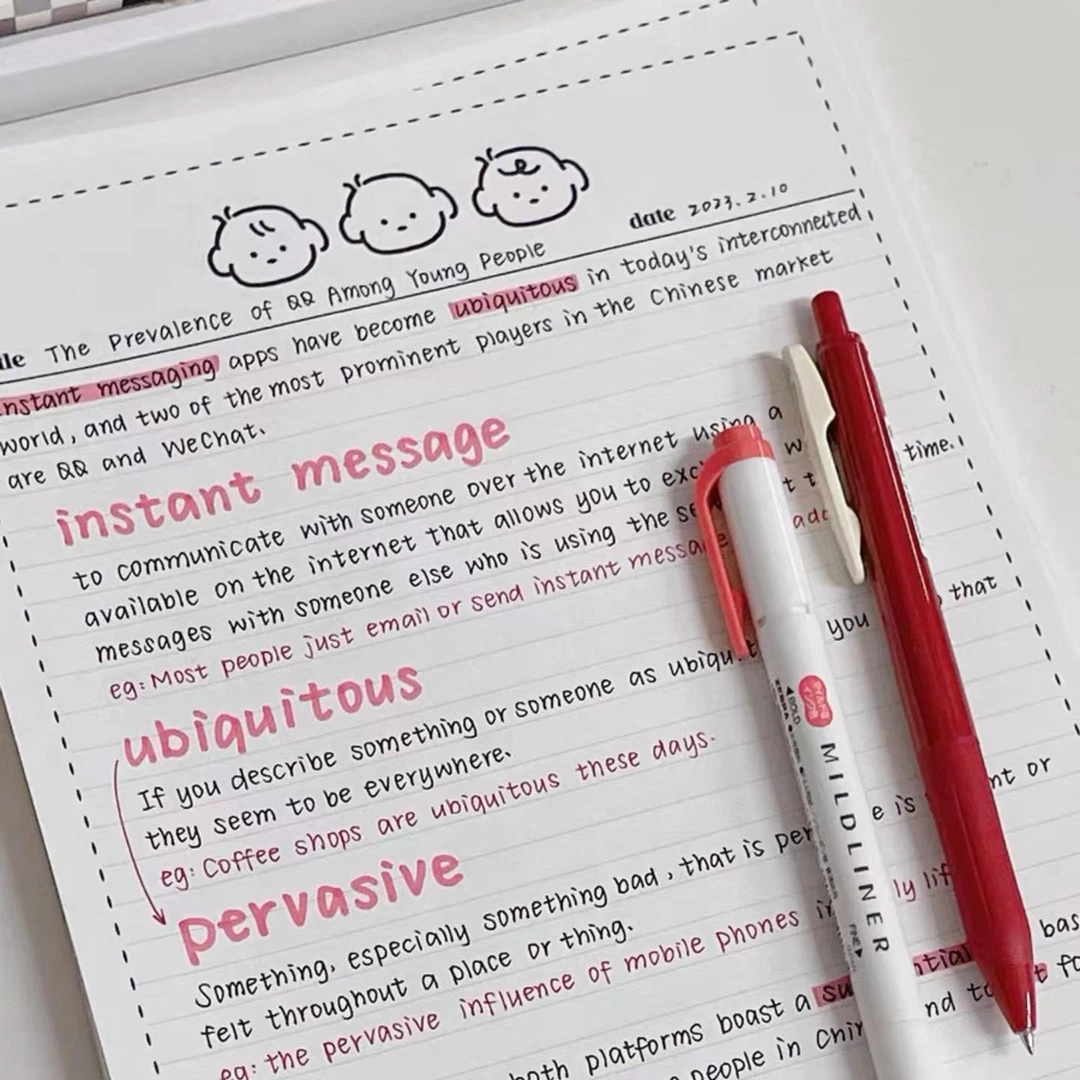 date 2023.2.10
The Prevalence of QQ Among Young People
instant messaging apps have become ubiquitous in today's interconnected
world, and two of the most prominent players in the Chinese market
are QQ and WeChat.
instant message
to communicate with someone over the internet using a
available on the internet that allows you to time.
messages with someone else who is using the
eg: Most people just email or send instant
ubiquitous
If you describe something or someone as you that
they seem to be everywhere.
eg: Coffee shops are ubiquitous these days.
pervasive
Something, especially something bad, that is is or
felt throughout a place or thing.
eg: the pervasive influence of mobile phones
both platforms boast a
people in
MILDLINER
BOLD
ZEBRA
FINE